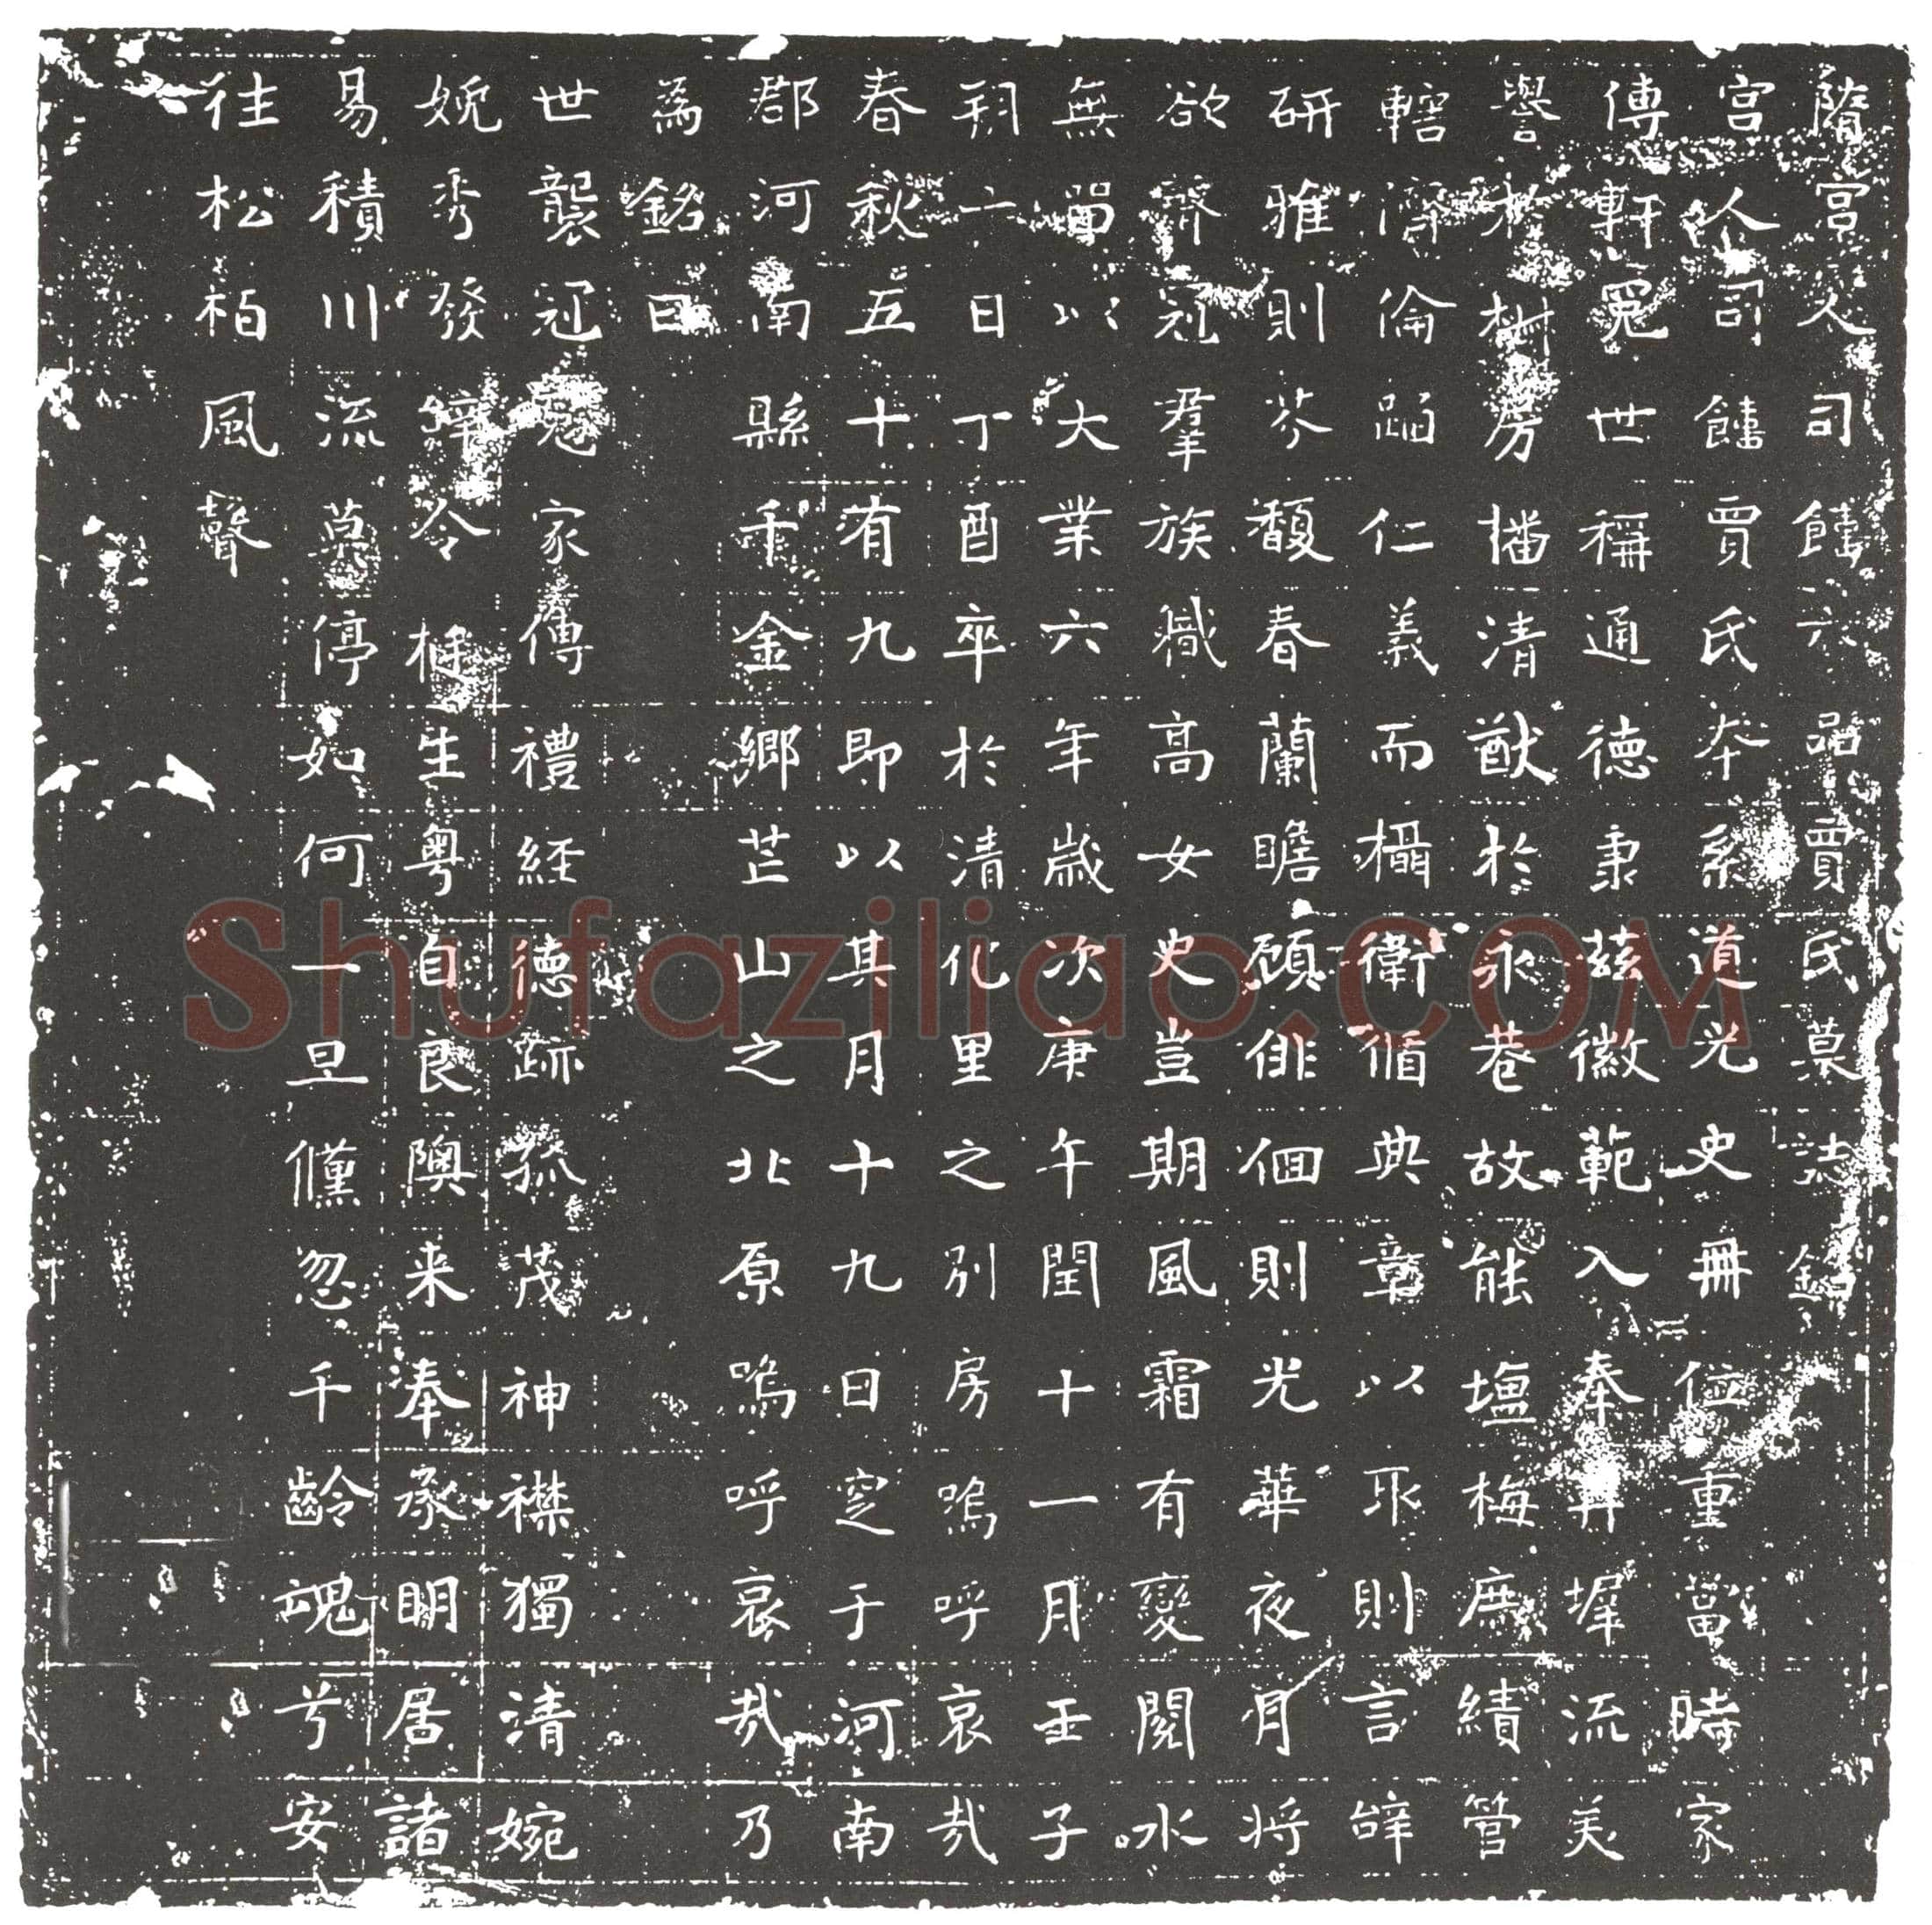 隋宮人司饎六品賈氏墓誌銘
宮人司饎賈氏本系道光史冊位重當時家
傳軒冕世稱通德秉茲徽範入奉丹墀流美
譽於樹房播清猷於永巷故能塩梅庶績管
轄濟倫蹈仁義而攝衛循典章以取則言辞
研雅則芬馥春蘭瞻顧俳佪則光華夜月將
欲齊冠羣族職高女史豈期風霜有變閱水
無留以大業六年歲次庚午閏十一月壬子
朔一日丁酉卒於清化里之別房嗚呼哀哉
春秋五十有九即以其月十九日窆于河南
郡河南縣千金鄉芒山之北原嗚呼哀哉乃
為銘曰
世襲冠冕家傳禮経德跡孤茂神襟獨清婉
娩秀發辞令 生粤自良隩来奉承明居諸
易積川流莫停如何一旦儵忽千齡魂兮安
往松栢風聲
Shufaziliao.COM